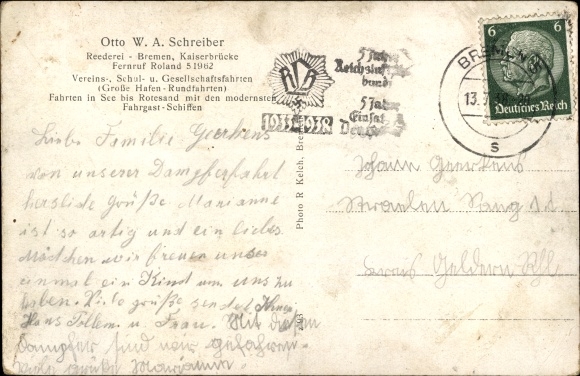 Otto W. A. Schreiber
Reederei - Bremen, Kaiserbrücke
Fernruf Roland 51962
Vereins-, Schul- u. Gesellschaftsfahrten
(Große Hafen-Rundfahrten)
Fahrten in See bis Rotesand mit den modernsten
Fahrgast-Schiffen
RLB
1933 1938
5 Jahre
Reichsluftschutz
bund
5 Jahre
Einsatz
BREMEN
13.7
S
6 6
Deutsches Reich
Photo R Kelch, Bre
Liebe Familie Geerkens
von unserer Dampferfahrt
herzliche Grüße Marianne
ist so artig und ein liebes
Mädchen wir freuen uns
einmal ein Kind um uns zu
haben. Viele grüße sendet
Hans u. Frau. Mit diesem
Dampfer sind wir gefahren.
viele grüße Marianne.
Johann Geerkens
Straelen Sang
Kreis Geldern Rhl.